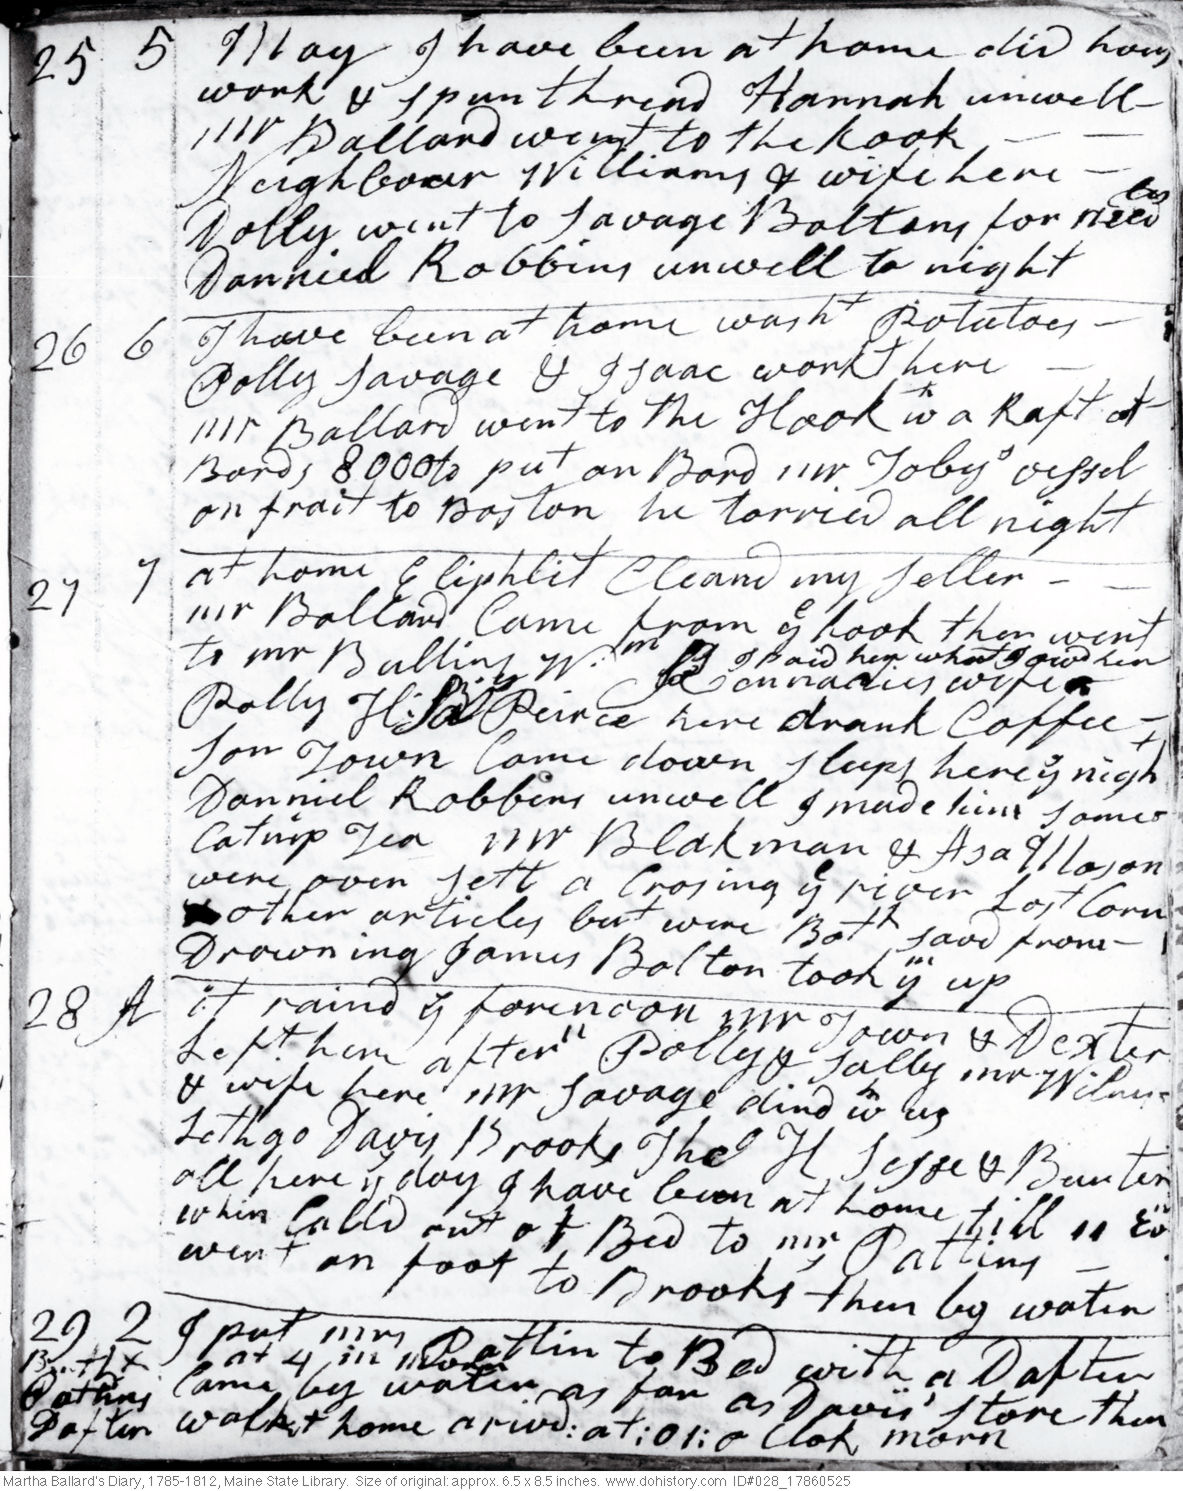 25 5 May I have been at home did hous
work & spun thread Hannah unwell
mr Ballard went to the hook
Neighbour Williams & wife here
Dolly went to Savage Boltons for
Danniel Robbins unwell to night
26 6 I have been at home washt Potatoes
Polly Savage & Isaac workt here
mr Ballard went to the Hook wth a Raft of
Bords 8000 to put on Bord mr Tobys vessel
on frait to Boston he tarried all night
27 7 at home Eliphlit Cleand my seller
mr Ballard Came from ye hook then went
to mr Bullins Wm
I paid her what I owd her
Cannadies wife
Polly Peirce here drank Coffee
son Town Came down sleeps here ye night
Danniel Robbins unwell I made him some
Catnip Tea mr Blakman & Asa Mason
were over sett a Crosing ye river Lost Corn
& other articles but were Both savd from
Drowning James Bolton took ym up
28 A it raind ye forenoon mr Town & Dexter
Left here aftern Polly & Sally mr Wilms
& wife here mr Savage dind wth us
Sethgo Davis Brooks The H Jesse &
all here ye day I have been at home till 11 Evn
when Calld out of Bed to mr Pattins
went on foot to Brooks then by water
29 2 I put mrs Pattin to Bed with a Dafter
at 4 in morn
Birth
Pattins
Dafter
Came by water as far as Davis' store then
walkt home arivd: at: 01: o Clok morn
Martha Ballard's Diary, 1785-1812, Maine State Library. Size of original: approx. 6.5 x 8.5 inches. www.dohistory.com ID#028_17860525